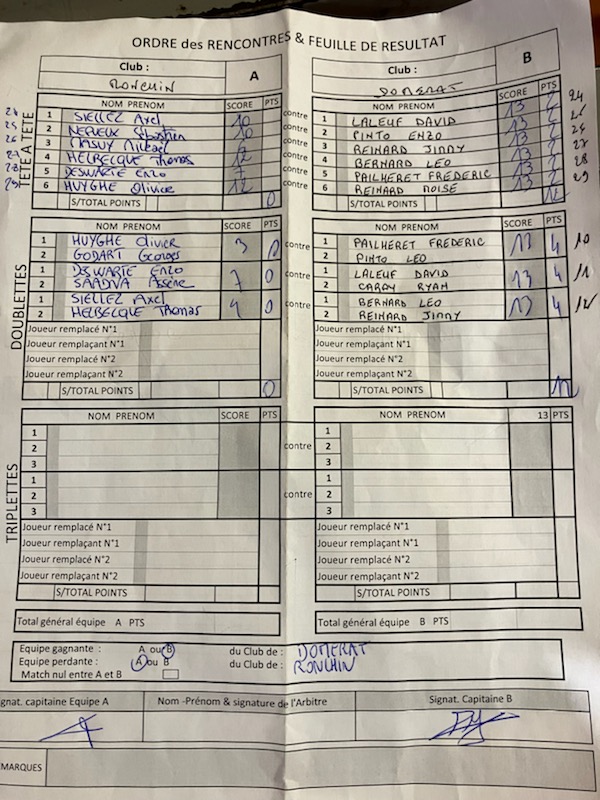 ORDRE des RENCONTRES & FEUILLE DE RESULTAT
Club : A Club : B
RONCHIN DOMERAT
NOM PRENOM SCORE PTS NOM PRENOM SCORE PTS
TETE A TETE
24 1 SIELLEZ Axel 10 contre 1 LALEUF DAVID 13 2 24
25 2 Sébastien 10 contre 2 PINTO ENZO 13 2 25
26 3 contre 3 REINARD JIMMY 13 2 26
27 4 HELBECQUE Thomas 12 contre 4 BERNARD LEO 13 2 27
28 5 DESWARTE Enzo 7 contre 5 PAILHERET FREDERIC 13 2 28
29 6 HUYGHE Olivier 12 contre 6 REINARD 13 2 29
S/TOTAL POINTS 0 S/TOTAL POINTS 12
DOUBLETTES
NOM PRENOM SCORE PTS NOM PRENOM SCORE PTS
1 HUYGHE Olivier 3 0 contre 1 PAILHERET FREDERIC 13 4 10
2 GODART Georges 2 PINTO LEO
1 DESWARTE Enzo 7 0 contre 1 LALEUF DAVID 13 4 11
2 SAADVA 2 CARRY RYAN
1 SIELLEZ Axel 0 contre 1 BERNARD LEO 13 4 12
2 HELBECQUE Thomas 2 REINARD JIMMY
Joueur remplacé N°1 Joueur remplacé N°1
Joueur remplaçant N°1 Joueur remplaçant N°1
Joueur remplacé N°2 Joueur remplacé N°2
Joueur remplaçant N°2 Joueur remplaçant N°2
S/TOTAL POINTS 0 S/TOTAL POINTS 12
TRIPLETTES
NOM PRENOM SCORE PTS NOM PRENOM 13 PTS
1 1
2 contre 2
3 3
1 1
2 contre 2
3 3
Joueur remplacé N°1 Joueur remplacé N°1
Joueur remplaçant N°1 Joueur remplaçant N°1
Joueur remplacé N°2 Joueur remplacé N°2
Joueur remplaçant N°2 Joueur remplaçant N°2
S/TOTAL POINTS S/TOTAL POINTS
Total général équipe A PTS Total général équipe B PTS
Equipe gagnante : A ou B du Club de : DOMERAT
Equipe perdante : A ou B du Club de : RONCHIN
Match nul entre A et B
gnat. capitaine Equipe A Nom -Prénom & signature de l'Arbitre Signat. Capitaine B
EMARQUES